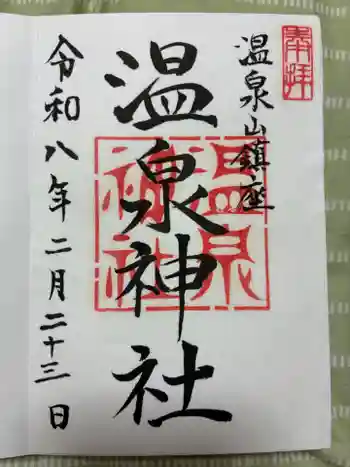 奉拝
温泉山鎮座
温泉神社
温泉
神社
令和八年二月二十三日